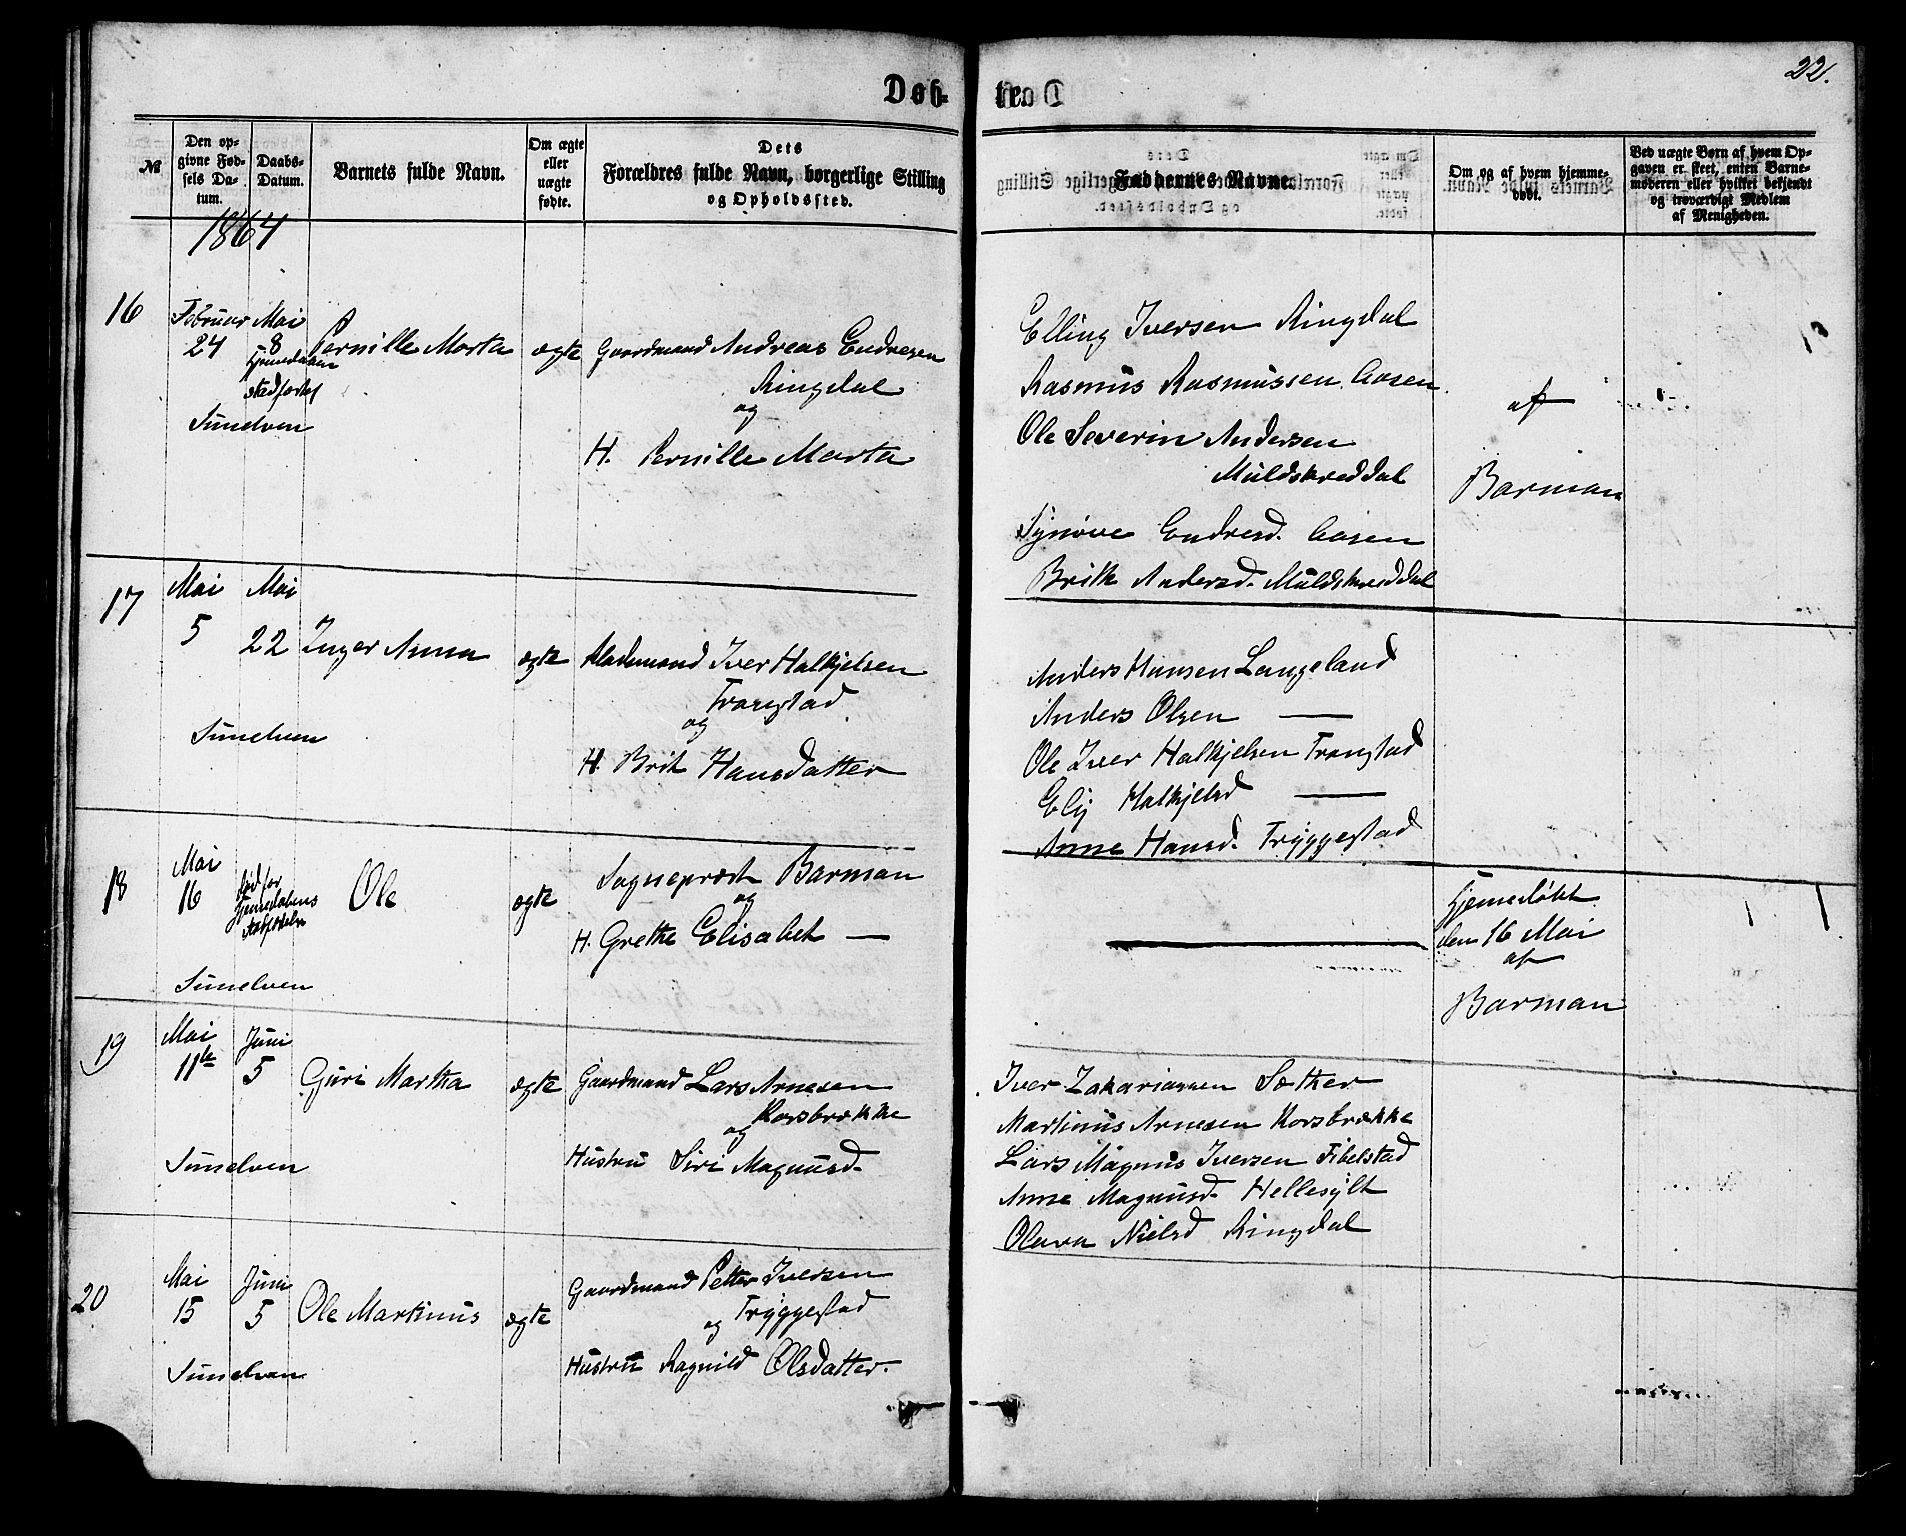 22.
Døb- te.
№
Den op-
givne Fød-
sels Da-
tum.
Daabs-
Datum.
Barnets fulde Navn.
Om ægte
eller
uægte
fødte.
Dets
Forældres fulde Navn, borgerlige Stilling
og Opholdssted.
Faddernes Navne.
Om og af hvem hjemme-
døbt.
Ved uægte Børn af hvem Op-
gaven er skeet, enten Barne-
moderen eller hvilket bekjendt
og troværdigt Medlem
af Menigheden.
1864
16
Februar
24
Mai
8
Hjemedaaben
stadfæstet
Sunelven
Pernille Marta
ægte
Gaardmand Andreas Endresen
Ringdal
og
H. Pernille Marta
Elling Iversen Ringdal
Rasmus Rasmussen Aasen
Ole Severin Andersen
Muldskreddal
Synøve Endresd. Aasen
Brith Andersd. Muldskreddal
af
Barman
17
Mai
5
Mai
22
Sunelven
Inger Anna
ægte
Pladsmand Iver Halkjelsen
Tronstad
og
H. Brit Hansdatter
Anders Hansen Langeland
Anders Olsen —
Ole Iver Halkjelsen Tronstad
Elij Halkjelsd —
Anne Hansd. Tryggestad
18
Mai
16
død før
Hjemedaabens
Sunelven
Ole
ægte
Sogneprest Barman
og
H. Grethe Elisabet —
Hjemedøbt
den 16 Mai
af
Barman
19
Mai
11te
Juni
5
Sunelven
Guri Martha
ægte
Gaardmand Lars Arnesen
Korsbrække
og
Hustru Siri Magnusd.
Iver Zakariassen Sæther
Martinus Arnesen Korsbrække
Lars Magnus Iversen Fibelstad
Anne Magnusd. Hellesylt
Olava Nielsd Ringdal
20
Mai
15
Juni
5
Sunelven
Ole Martinus
ægte
Gaardmand Petter Iversen
Tryggestad
og
Hustru Ragnild Olsdatter.